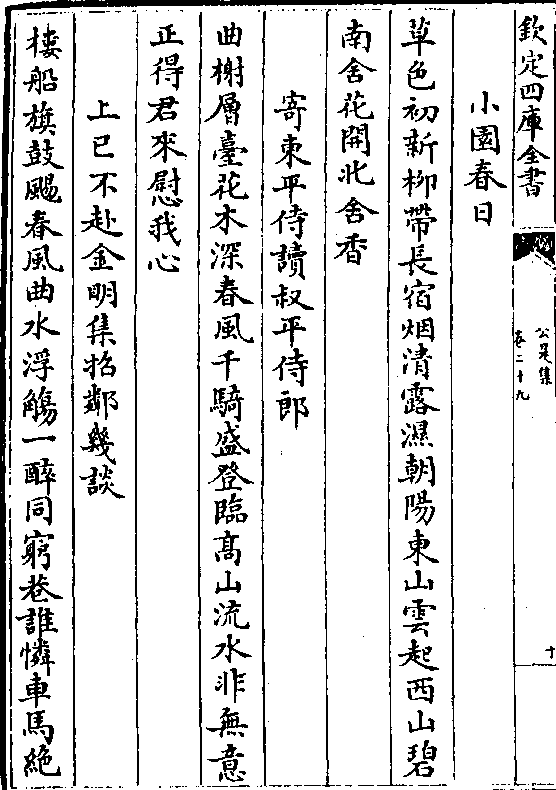 欽定四庫全書
公是集
卷二十九
十
小園春日
草色初新柳帶長宿烟清露濕朝陽東山雲起西山碧
南舍花開北舍香
寄東平侍讀叔平侍郎
曲榭層臺花木深春風千騎盛登臨髙山流水非無意
正得君來慰我心
上巳不赴金明集招鄰幾談
樓船旗鼓颺春風曲水浮觴一醉同窮巷誰憐車馬絶